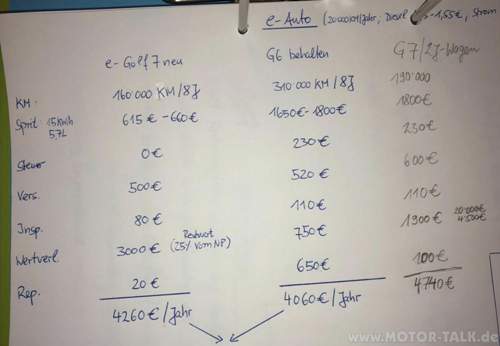 e-Auto (20000km/Jahr, Diesel 1,55€, Strom
e-Golf 7 neu G6 behalten G7/2J-Wagen
KM. 160'000 KM/8J 310'000 KM/8J 190'000
Sprit 15KWh 5,7L 615€-660€ 1650€-1800€ 1800€
Steuer 0€ 230€ 230€
Vers. 500€ 520€ 600€
Insp. 80€ 110€ 110€
Wertverl. 3000€ Restwert (25% vom NP) 750€ 1900€ 20'000€ 4'500€
Rep. 20€ 650€ 100€
4260€/Jahr 4060€/Jahr 4740€
www.MOTOR-TALK.de